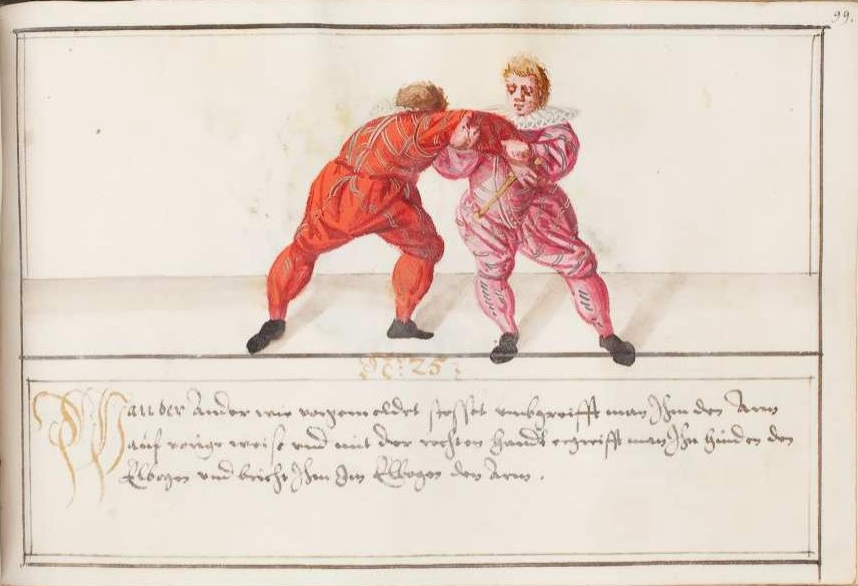 99.
N: 25:
Wan der Ander wie vorgemeldet stosset vmbgreifft man Ihm den Arm
auf vorige weise vnd mit der rechten handt ergreifft man Ihn hinden den
Elbogen vnd bricht Ihm Im Elbogen den Arm.